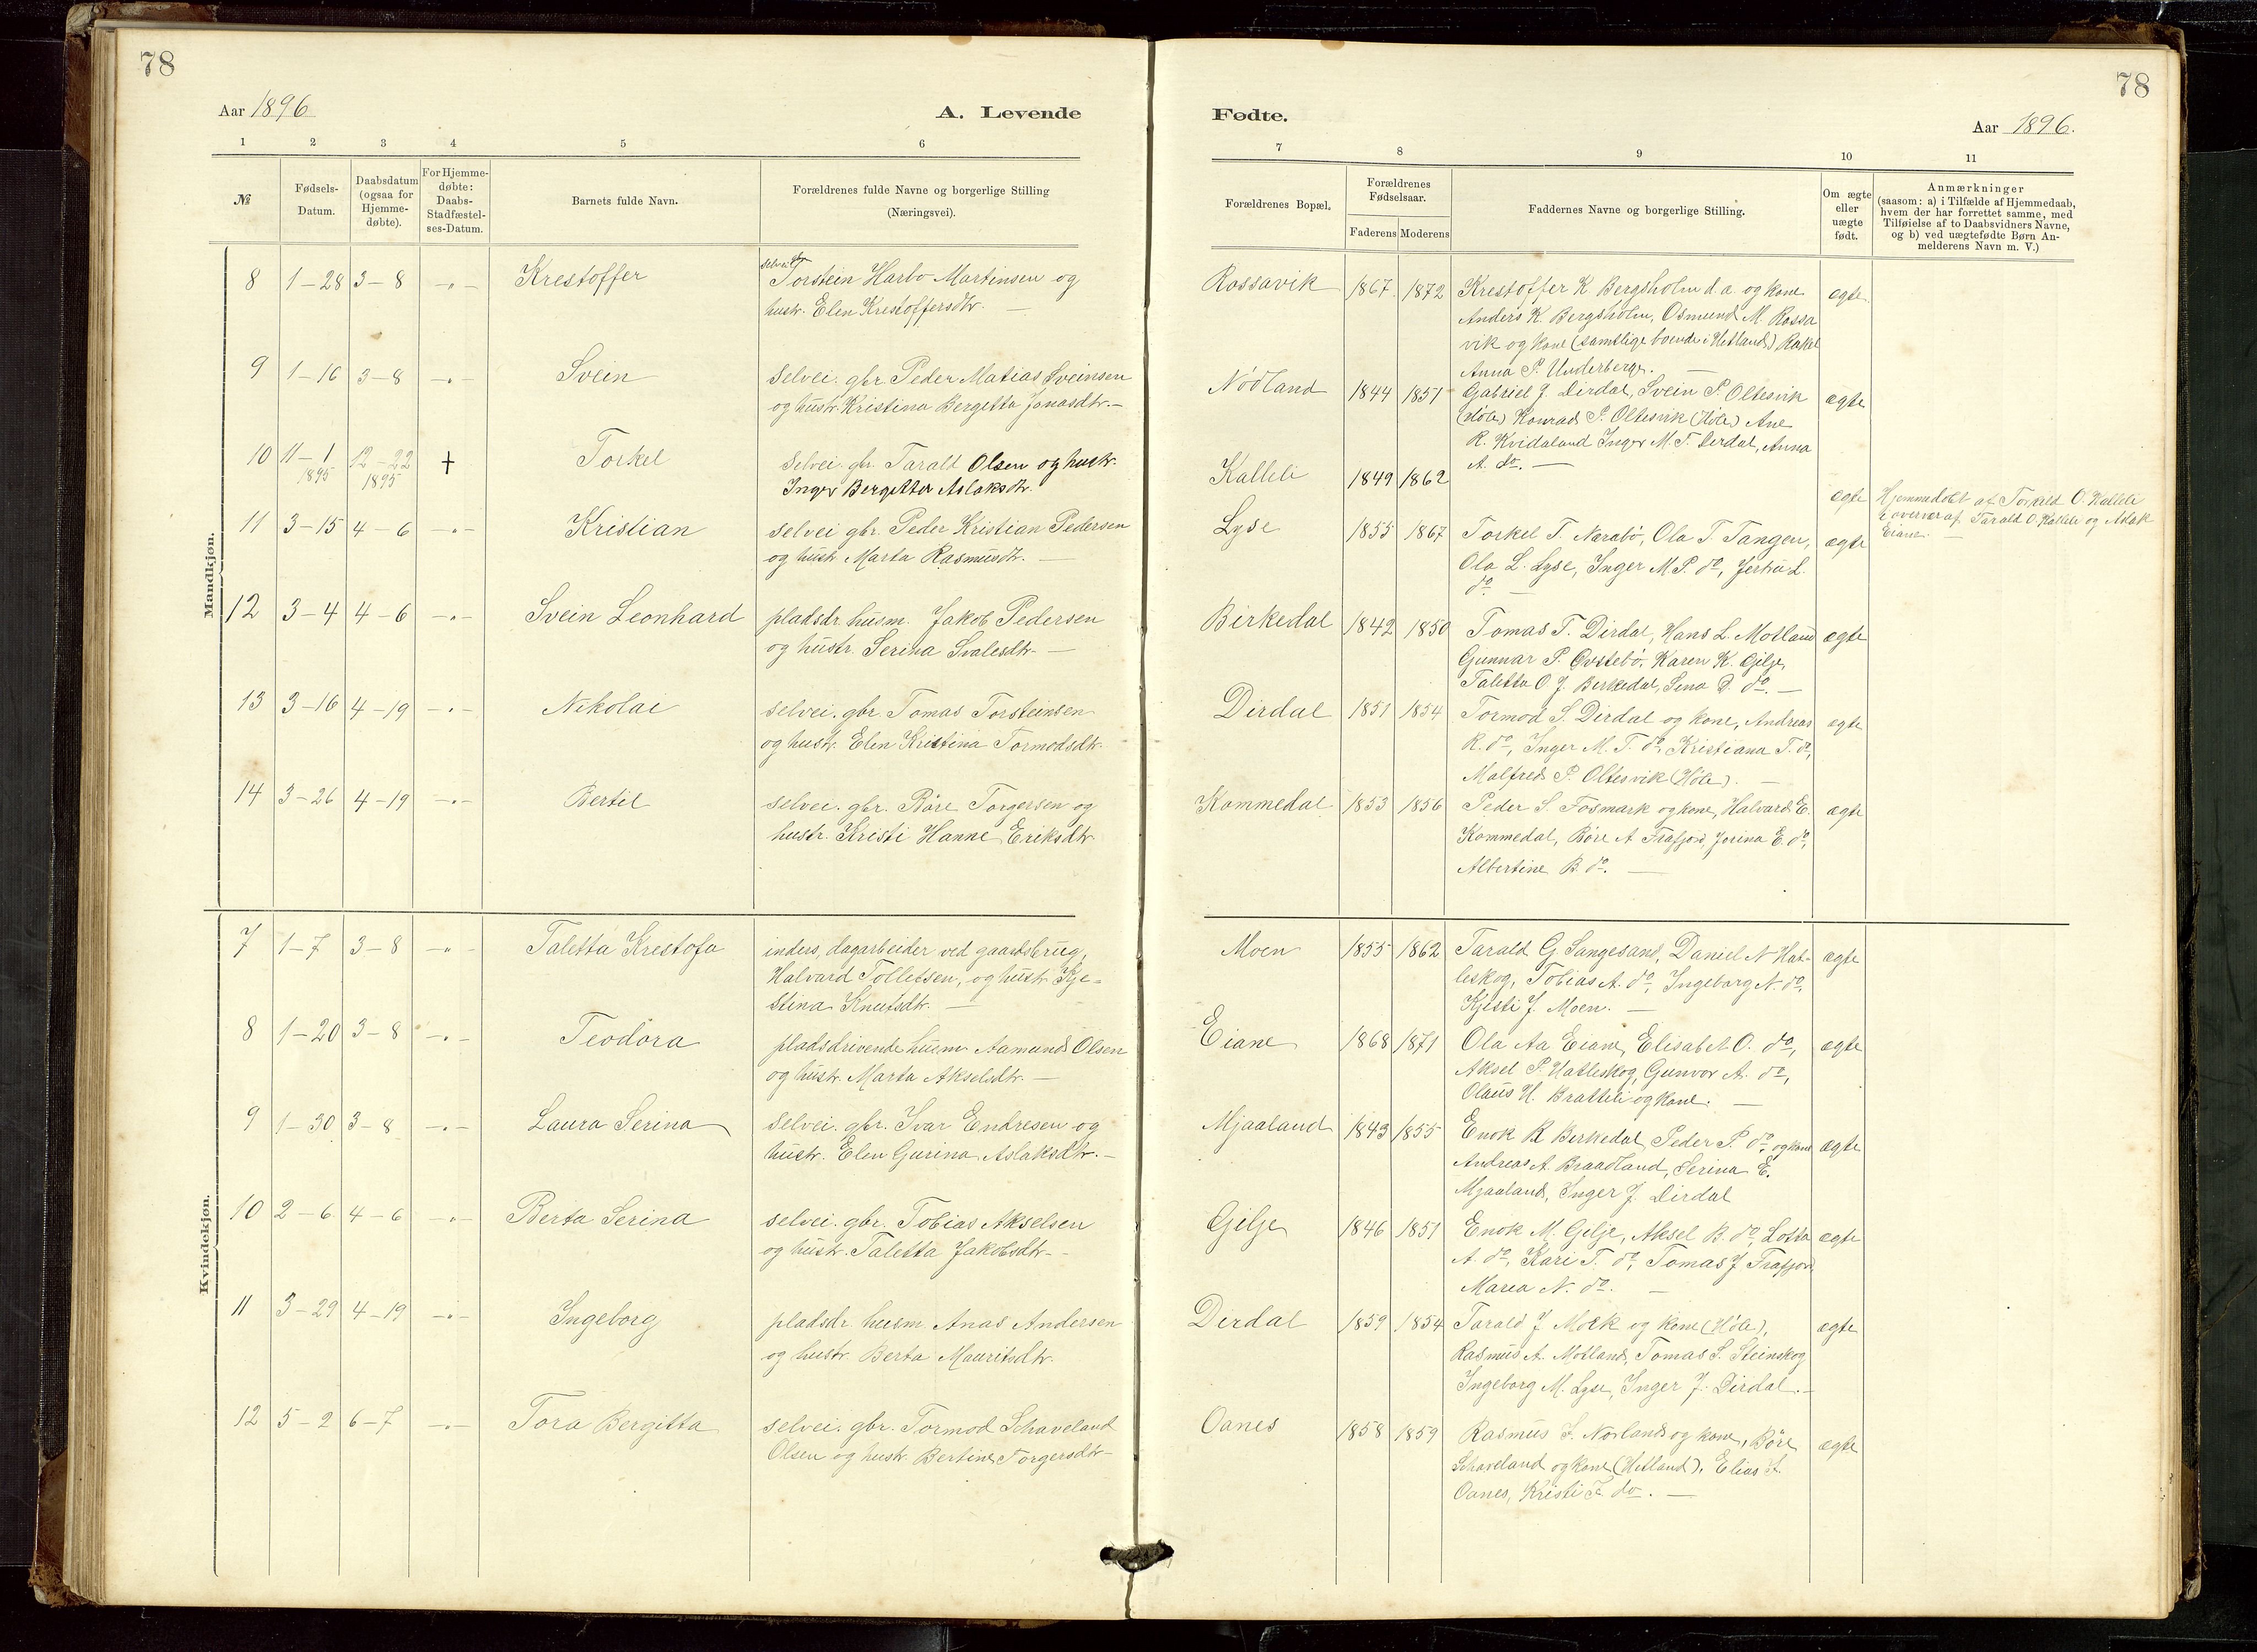 78
Aar 1896
A. Levende
1 2 3 4 5 6
№
Fødsels-
Datum.
Daabsdatum
(ogsaa for
Hjemme-
døbte).
For Hjemme-
døbte:
Daabs-
Stadfæstel-
ses-Datum.
Barnets fulde Navn.
Forældrenes fulde Navne og borgerlige Stilling
(Næringsvei).
Mandkjøn.
8 1–28 3–8 –"– Krestoffer selvei. gbr.
Torstein Harbo Martinsen og
hustr. Elen Krestoffersdtr. —
9 1–16 3–8 –"– Svein selvei. gbr. Peder Matias Sveinsen
og hustr. Kristina Bergetta Jonasdtr. –
10 11–1 12–22 † Torkel selvei. gbr. Tarald Olsen og hustr.
1895 1895 Inger Bergitta Aslaksdtr.
11 3–15 4–6 –"– Kristian selvei gbr. Peder Kristian Pedersen
og hustr. Marta Rasmusdtr. —
12 3–4 4–6 –"– Svein Leonhard pladsdr. husm. Jakob Pedersen
og hustr. Serina Svalesdtr. –
13 3–16 4–19 –"– Nikolai selvei. gbr. Tomas Torsteinsen
og hustr. Elen Kristina Tormodsdtr.
14 3–26 4–19 –"– Bertil selvei. gbr. Böre Torgersen og
hustr. Kristi Hanne Eriksdtr.
Kvindekjøn.
7 1–7 3–8 –"– Taletta Krestofa inders, dagarbeider ved gaardsbrug,
Halvard Tollefsen, og hustr. Kje-
stina Knutsdtr. —
8 1–20 3–8 –"– Teodora pladsdrivende husm. Aamund Olsen
og hustr. Marta Akselsdtr. —
9 1–30 3–8 –"– Laura Serina selvei. gbr. Ivar Endresen og
hustr. Elen Gurina Aslaksdtr. –
10 2–6 4–6 –"– Berta Serina selvei. gbr. Tobias Akselsen
og hustr. Taletta Jakobsdtr. –
11 3–29 4–19 –"– Ingeborg pladsdr. husm. Anas Andersen
og hustr. Berta Mauritsdtr.
12 5–2 6–7 –"– Tora Bergitta selvei. gbr. Tormod Schaveland
Olsen og hustr. Bertine Torgersdtr
78
Fødte.
Aar 1896.
7 8 9 10 11
Forældrenes Bopæl.
Forældrenes
Fødselsaar.
Faderens Moderens
Faddernes Navne og borgerlige Stilling.
Om ægte
eller
uægte
født.
Anmærkninger
(saasom: a) i Tilfælde af Hjemmedaab,
hvem der har forrettet samme, med
Tilføielse af to Daabsvidners Navne,
og b) ved uægtefødte Børn An-
melderens Navn m. V.)
Rossavik 1867. 1872 Krestoffer K. Bergsholm d. a. og kone ægte.
Anders K. Bergsholm, Osmund M. Rossa
vik og kone (samtlige boende i Hetland) Rakel
Anna P. Underberge. —
Nödland 1844 1851 Gabriel J. Dirdal, Svein P. Oltesvik ægte
(Höle) Konrad P. Oltesvik (Höle) Ane
R. Kvidaland Inger M. T. Dirdal, Anna
A. do. —
Kalleli 1849 1862 ægte Hjemmedöbt af Torkild O. Kalleli
i overvær af Tarald O. Kalleli og Aslak
Eiane. —
Lyse 1855 1867 Torkel T. Narabö, Ola T. Tangen, ægte
Ola L. Lyse, Inger M P. do, Jertru L.
do. —
Birkedal 1842 1850 Tomas T. Dirdal, Hans L. Motland ægte
Gunnar P. Övstebö, Karen K. Gilje,
Taletta O J. Berkedal, Sena D. do. —
Dirdal 1851 1854 Tormod S. Dirdal og kone, Andreas ægte
R. do, Inger M. T. do, Kristiana T. do,
Malfred P. Oltesvik (Höle). —
Kommedal 1853 1856 Peder S. Fosmark og kone, Halvard E. ægte
Kommedal, Böre A Frafjord, Jorina E. do,
Albertine B. do. —
Moen 1855 1862 Tarald G Sangesand, Daniel N Hat- ægte
leskog, Tobias A. do, Ingeborg N. do.
Kjesti J. Moen. —
Eiane 1868 1871 Ola Aa Eiane, Elisabet O. do, ægte
Aksel P. Hatleskog, Gunvor A. do,
Olaus H. Bratteli og kone. —
Mjaaland 1843 1855 Enok R Berkedal Peder P. do. og kone ægte
Andreas A. Braadland, Serina E.
Mjaaland, Inger J. Dirdal
Gilje 1846 1851 Enok M. Gilje, Aksel B. do, Lotta ægte
A. do, Kari T. do, Tomas J. Frafjord,
Maria N. do. —
Dirdal 1859 1854 Tarald J Moek og kone (Höle), ægte
Rasmus A. Motland, Tomas S. Steinskog
Ingeborg M. Lyse, Inger J. Dirdal. –
Oanes 1858 1859 Rasmus J. Norland og kone, Böre ægte
Schaveland og kone (Hetland), Elias
Oanes, Kristi T. do. —